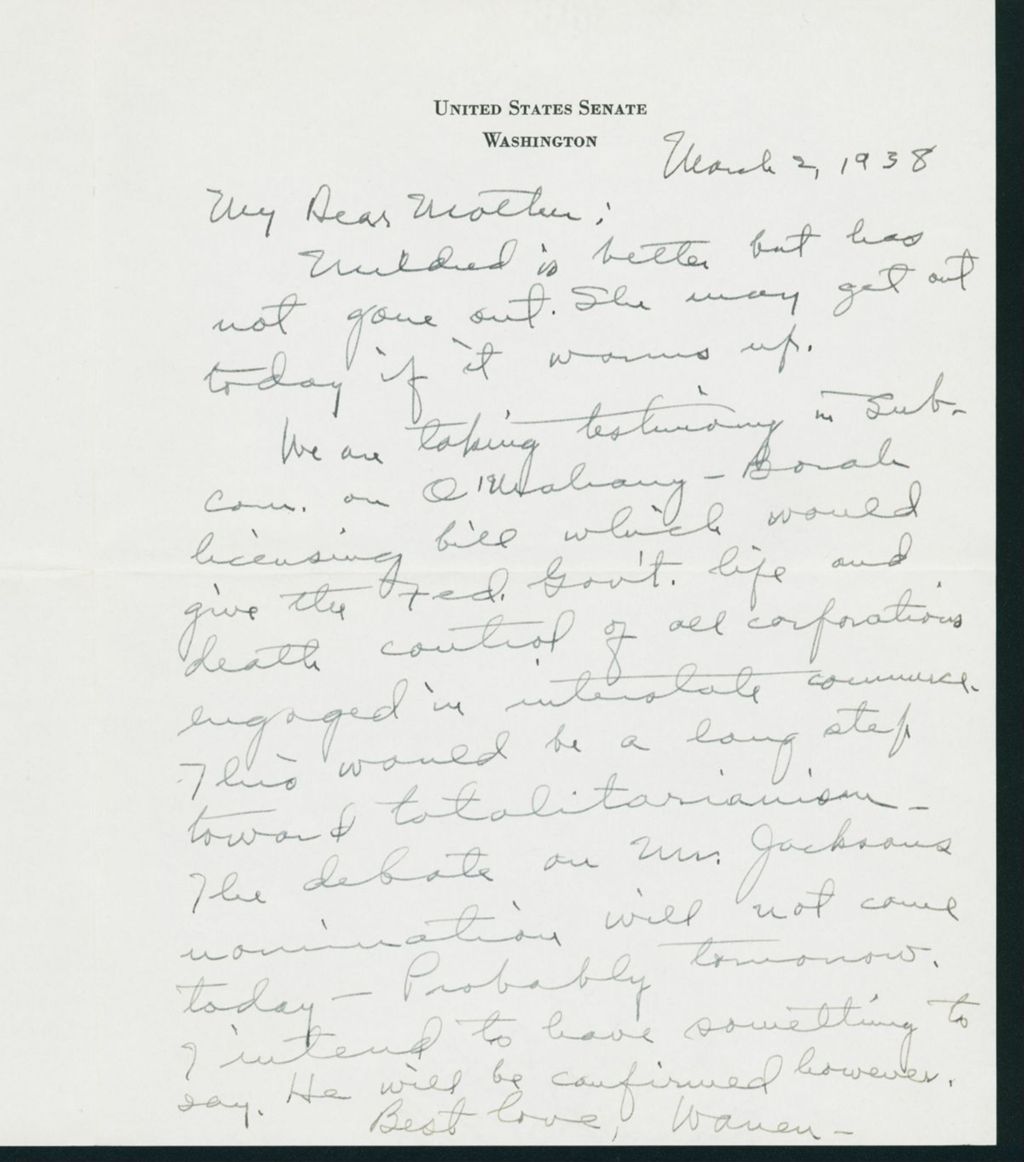 UNITED STATES SENATE
WASHINGTON
March 2, 1938
My Dear Mother;
Mildred is better but has
not gone out. She may get out
today if it warms up.
We are taking testimony in Sub-
com. on O'Mahany - Borah
licensing bill which would
give the Fed. Gov't. life and
death control of all corporations
engaged in interstate commerce.
This would be a long step
toward totalitarianism -
The debate on Mr. Jacksons
nomination will not come
today - Probably tomorrow.
I intend to have something to
say. He will be confirmed however.
Best love, Warren -